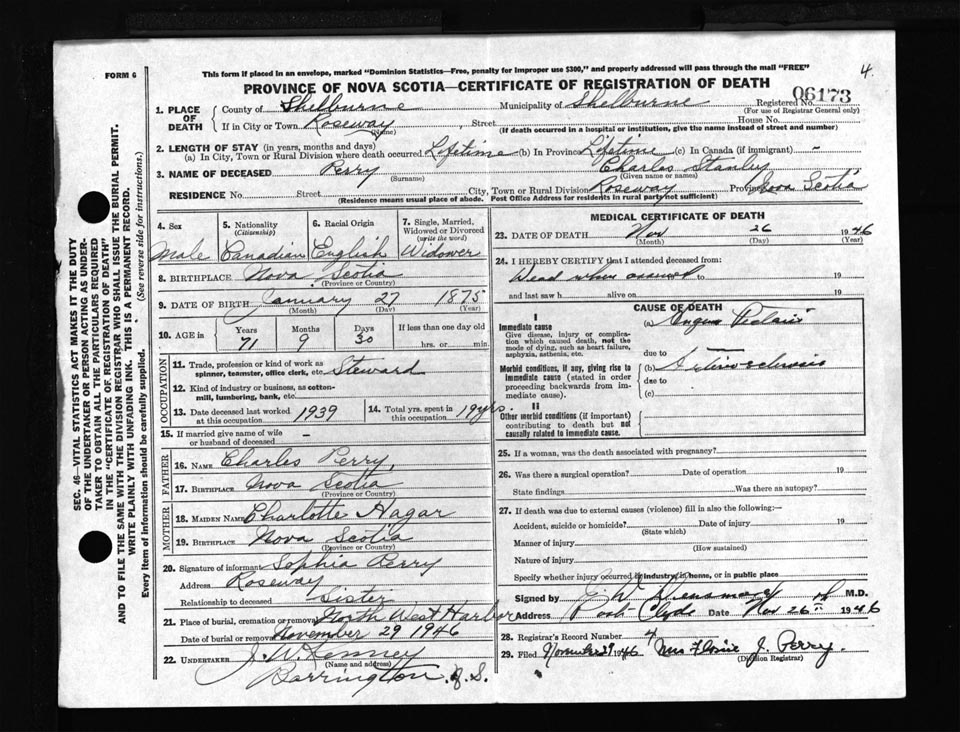 4.
FORM 6
This form if placed in an envelope, marked "Dominion Statistics—Free, penalty for improper use $300," and properly addressed will pass through the mail "FREE"
PROVINCE OF NOVA SCOTIA—CERTIFICATE OF REGISTRATION OF DEATH
06173
1. PLACE OF DEATH
County of Shelburne Municipality of Shelburne Registered No.
(For use of Registrar General only)
If in City or Town Roseway, Street House No.
(Name) (If death occurred in a hospital or institution, give the name instead of street and number)
2. LENGTH OF STAY (in years, months and days)
(a) In City, Town or Rural Division where death occurred Lifetime (b) In Province Lifetime (c) In Canada (if immigrant) -
3. NAME OF DECEASED Perry Charles Stanley
(Surname) (Given name or names)
RESIDENCE No. Street City, Town or Rural Division Roseway Province Nova Scotia
(Residence means usual place of abode. Post Office Address for residents in rural parts not sufficient)
4. Sex
Male
5. Nationality
(Citizenship)
Canadian
6. Racial Origin
English
7. Single, Married, Widowed or Divorced
(write the word)
Widower
8. BIRTHPLACE Nova Scotia
(Province or Country)
9. DATE OF BIRTH January 27 1875
(Month) (Day) (Year)
10. AGE in
Years Months Days If less than one day old
71 9 30 hrs. or min.
OCCUPATION
11. Trade, profession or kind of work as
spinner, teamster, office clerk, etc. Steward
12. Kind of industry or business, as cotton-
mill, lumbering, bank, etc.
13. Date deceased last worked
at this occupation 1939
14. Total yrs. spent in
this occupation 19 yrs.
15. If married give name of wife
or husband of deceased -
FATHER
16. NAME Charles Perry,
17. BIRTHPLACE Nova Scotia
(Province or Country)
MOTHER
18. MAIDEN NAME Charlotte Hagar
19. BIRTHPLACE Nova Scotia
(Province or Country)
20. Signature of informant Sophia Perry
Address Roseway
Relationship to deceased Sister
21. Place of burial, cremation or removal North West Harbor
Date of burial or removal November 29 1946
22. UNDERTAKER J. W. Kenney
(Name and address)
Barrington. N.S.
MEDICAL CERTIFICATE OF DEATH
23. DATE OF DEATH Nov 26 1946
(Month) (Day) (Year)
24. I HEREBY CERTIFY that I attended deceased from:
Dead when to 19
and last saw h alive on 19
CAUSE OF DEATH
I
Immediate cause
Give disease, injury or complica-
tion which caused death, not the
mode of dying, such as heart failure,
asphyxia, asthenia, etc.
(a)
due to
Morbid conditions, if any, giving rise to
immediate cause (stated in order
proceeding backwards from im-
mediate cause).
(b)
due to
(c)
II
Other morbid conditions (if important)
contributing to death but not
causally related to immediate cause.
25. If a woman, was the death associated with pregnancy?
26. Was there a surgical operation? Date of operation 19
State findings Was there an autopsy?
27. If death was due to external causes (violence) fill in also the following:—
Accident, suicide or homicide? Date of injury 19
(State which)
Manner of injury
(How sustained)
Nature of injury
Specify whether injury occurred in industry, in home, or in public place
Signed by M.D.
Address Port Clyde Date Nov 26 1946
28. Registrar's Record Number 4
29. Filed November 29 1946 Mrs J. Perry.
(Division Registrar)
SEC. 46—VITAL STATISTICS ACT MAKES IT THE DUTY
OF THE UNDERTAKER OR PERSON ACTING AS UNDER-
TAKER TO OBTAIN ALL THE PARTICULARS REQUIRED
IN THE "CERTIFICATE OF REGISTRATION OF DEATH"
AND TO FILE THE SAME WITH THE DIVISION REGISTRAR WHO SHALL ISSUE THE BURIAL PERMIT.
WRITE PLAINLY WITH UNFADING INK. THIS IS A PERMANENT RECORD.
Every item of information should be carefully supplied. (See reverse side for instructions.)